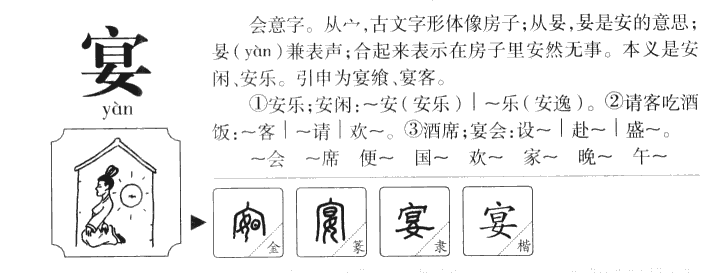 宴
yàn
会意字。从宀,古文字形体像房子;从妟,妟是安的意思;
妟(yàn)兼表声;合起来表示在房子里安然无事。本义是安
闲、安乐。引申为宴飨、宴客。
①安乐;安闲:~安(安乐)│~乐(安逸)。②请客吃酒
饭:~客│~请│欢~。③酒席;宴会:设~│赴~│盛~。
~会 ~席 便~ 国~ 欢~ 家~ 晚~ 午~
宴 金
宴 篆
宴 隶
宴 楷